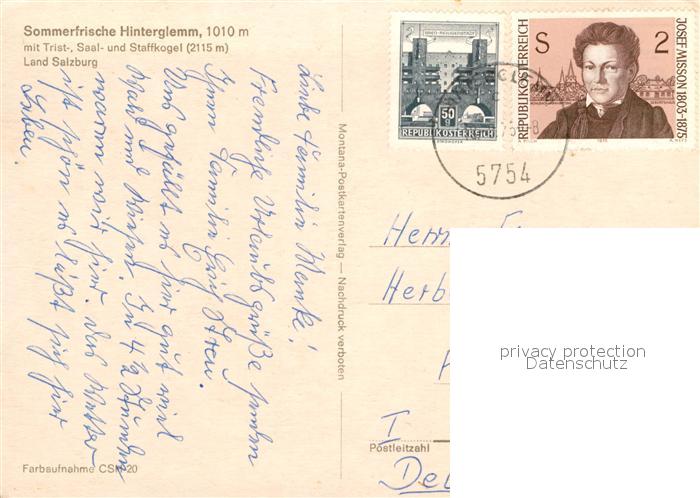 Sommerfrische Hinterglemm, 1010 m
mit Trist-, Saal- und Staffkogel (2115 m)
Land Salzburg
Liebe Familie Menke!
Freundliche Urlaubsgrüße senden
Ihnen Familie
Uns gefällt es hier gut viel
Wald und Wiesen. In 4 ½ Stunden
waren wir hier. das Wetter
ist schön es läßt sich hier
leben.
Farbaufnahme CSM 20
Montana-Postkartenverlag — Nachdruck verboten
WIEN-HEILIGENSTADT
50 g
REPUBLIK ÖSTERREICH
REPUBLIK ÖSTERREICH
S 2
JOSEF MISSON 1803-1875
1975
5754
Herrn
Postleitzahl
privacy protection
Datenschutz